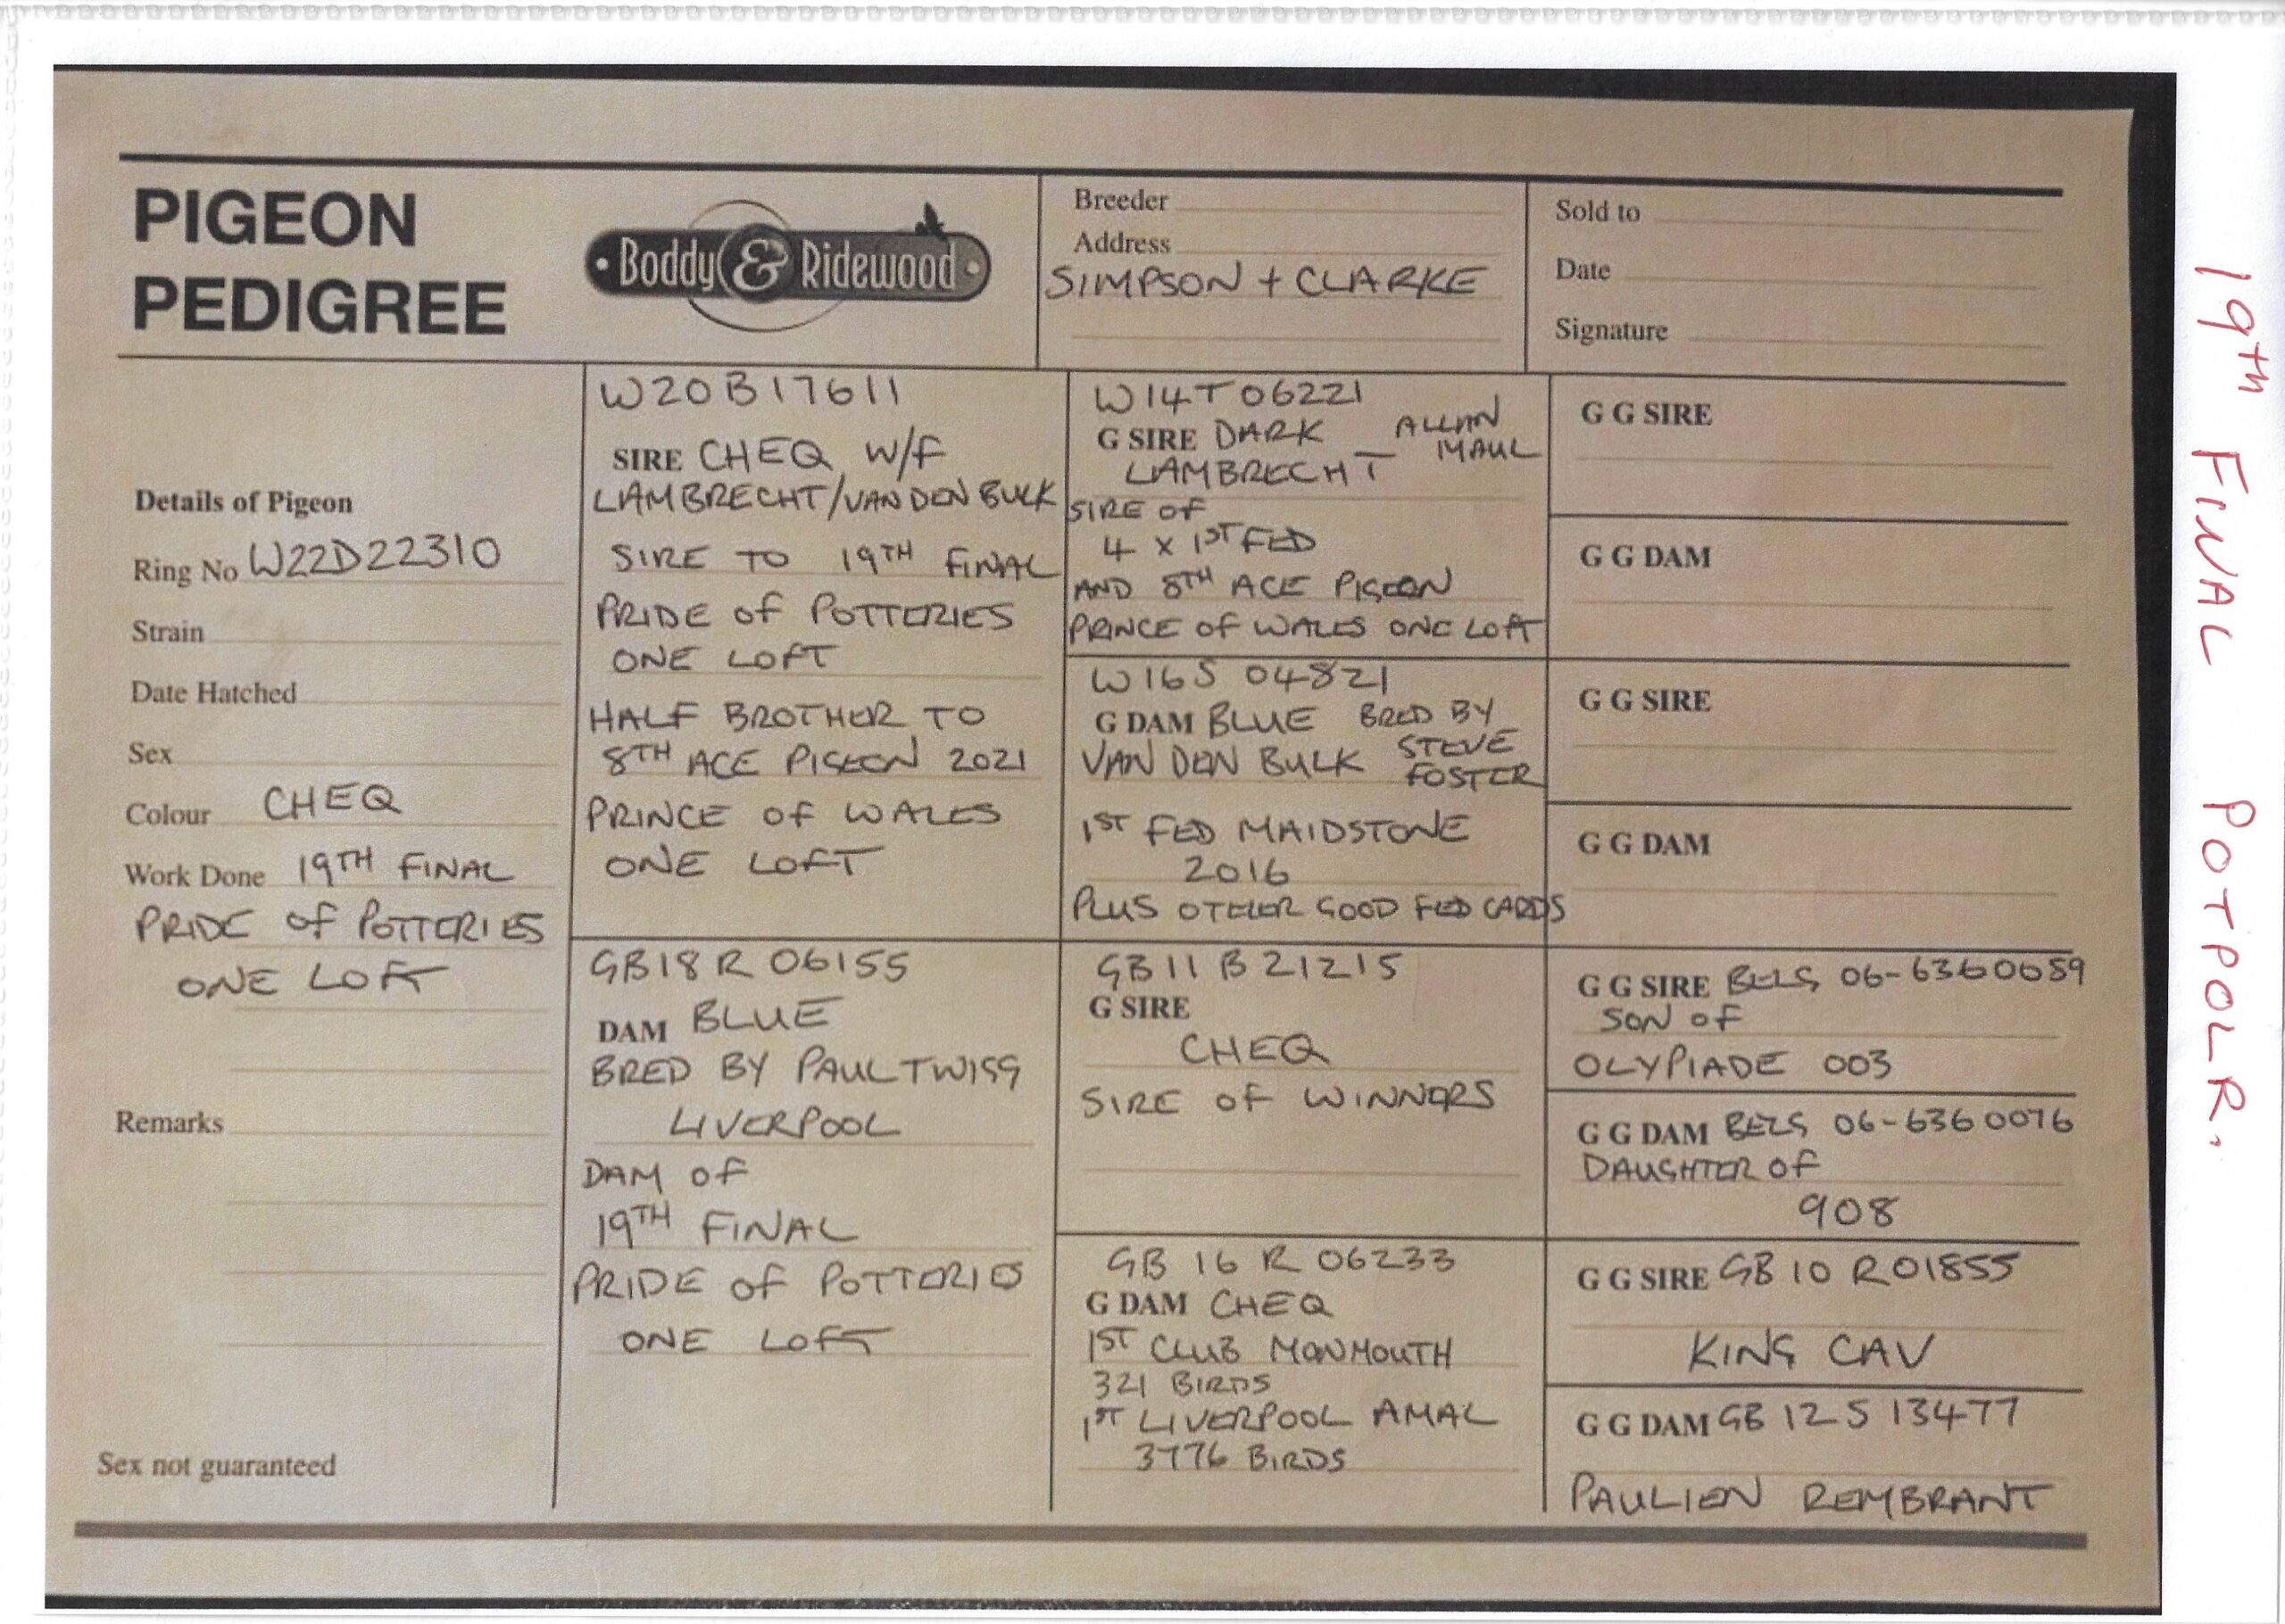 PIGEON
PEDIGREE
Boddy & Ridewood
Breeder
Address
SIMPSON + CLARKE
Sold to
Date
Signature
Details of Pigeon
Ring No W22D22310
Strain
Date Hatched
Sex
Colour CHEQ
Work Done 19TH FINAL
PRIDE OF POTTERIES
ONE LOFT
Remarks
Sex not guaranteed
W20B17611
SIRE CHEQ W/F
LAMBRECHT/VAN DEN BULK
SIRE TO 19TH FINAL
PRIDE OF POTTERIES
ONE LOFT
HALF BROTHER TO
8TH ACE PIGEON 2021
PRINCE OF WALES
ONE LOFT
GB18R 06155
DAM BLUE
BRED BY PAUL TWISS
LIVERPOOL
DAM OF
19TH FINAL
PRIDE OF POTTERIES
ONE LOFT
W14T06221
G SIRE DARK ALLAN
LAMBRECHT MAUL
SIRE OF
4 x 1ST FED
AND 8TH ACE PIGEON
PRINCE OF WALES ONE LOFT
W16S 04821
G DAM BLUE BRED BY
VAN DEN BULK STEVE
FOSTER
1ST FED MAIDSTONE
2016
PLUS OTHER GOOD FED CARDS
GB11 B21215
G SIRE
CHEQ
SIRE OF WINNERS
GB 16 R 06233
G DAM CHEQ
1ST CLUB MONMOUTH
321 BIRDS
1ST LIVERPOOL AMAL
3776 BIRDS
G G SIRE
G G DAM
G G SIRE
G G DAM
G G SIRE BELG 06-6360059
SON OF
OLYPIADE 003
G G DAM BELG 06-6360076
DAUGHTER OF
908
G G SIRE GB 10 R01855
KING CAV
G G DAM GB 12 S 13477
PAULIEN REMBRANT
19th FINAL POTPOLR.